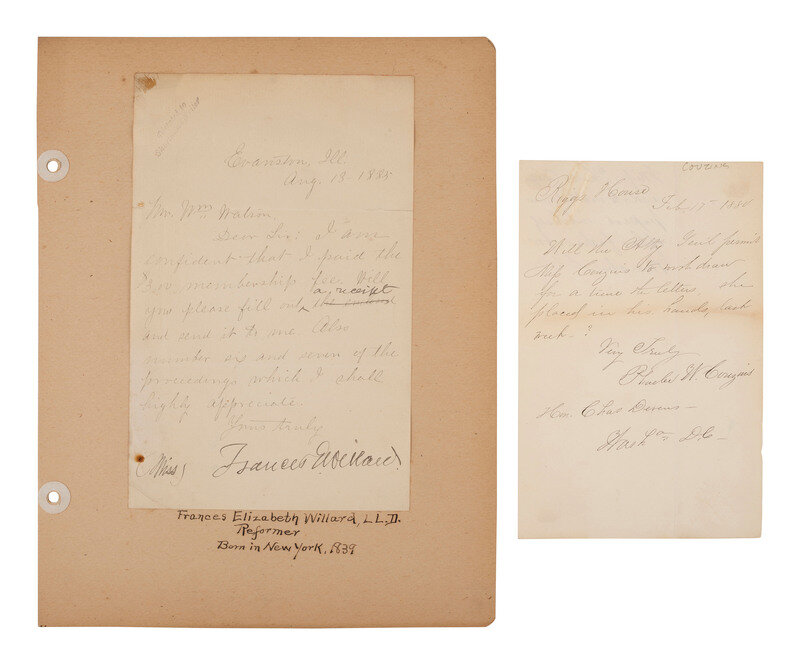 Evanston, Ill.
Aug. 13 - 1885
Mr. Wm Watson,
Dear Sir: I am
confident that I paid the
$3.00 membership fee. Will
you please fill out a receipt
and send it to me. Also
number six and seven of the
proceedings which I shall
highly appreciate.
Yours truly
(Miss) Frances E. Willard.
Frances Elizabeth Willard, LL.D.
Reformer
Born in New York, 1839
COUZINS
Riggs House
Feb. 1880
Will the Atty Genl permit
Miss Couzins to withdraw
for a time the letters she
placed in his hands, last
week - ?
Very Truly
Phoebe W. Couzins
Hon. Chas Devens -
Washn D.C -